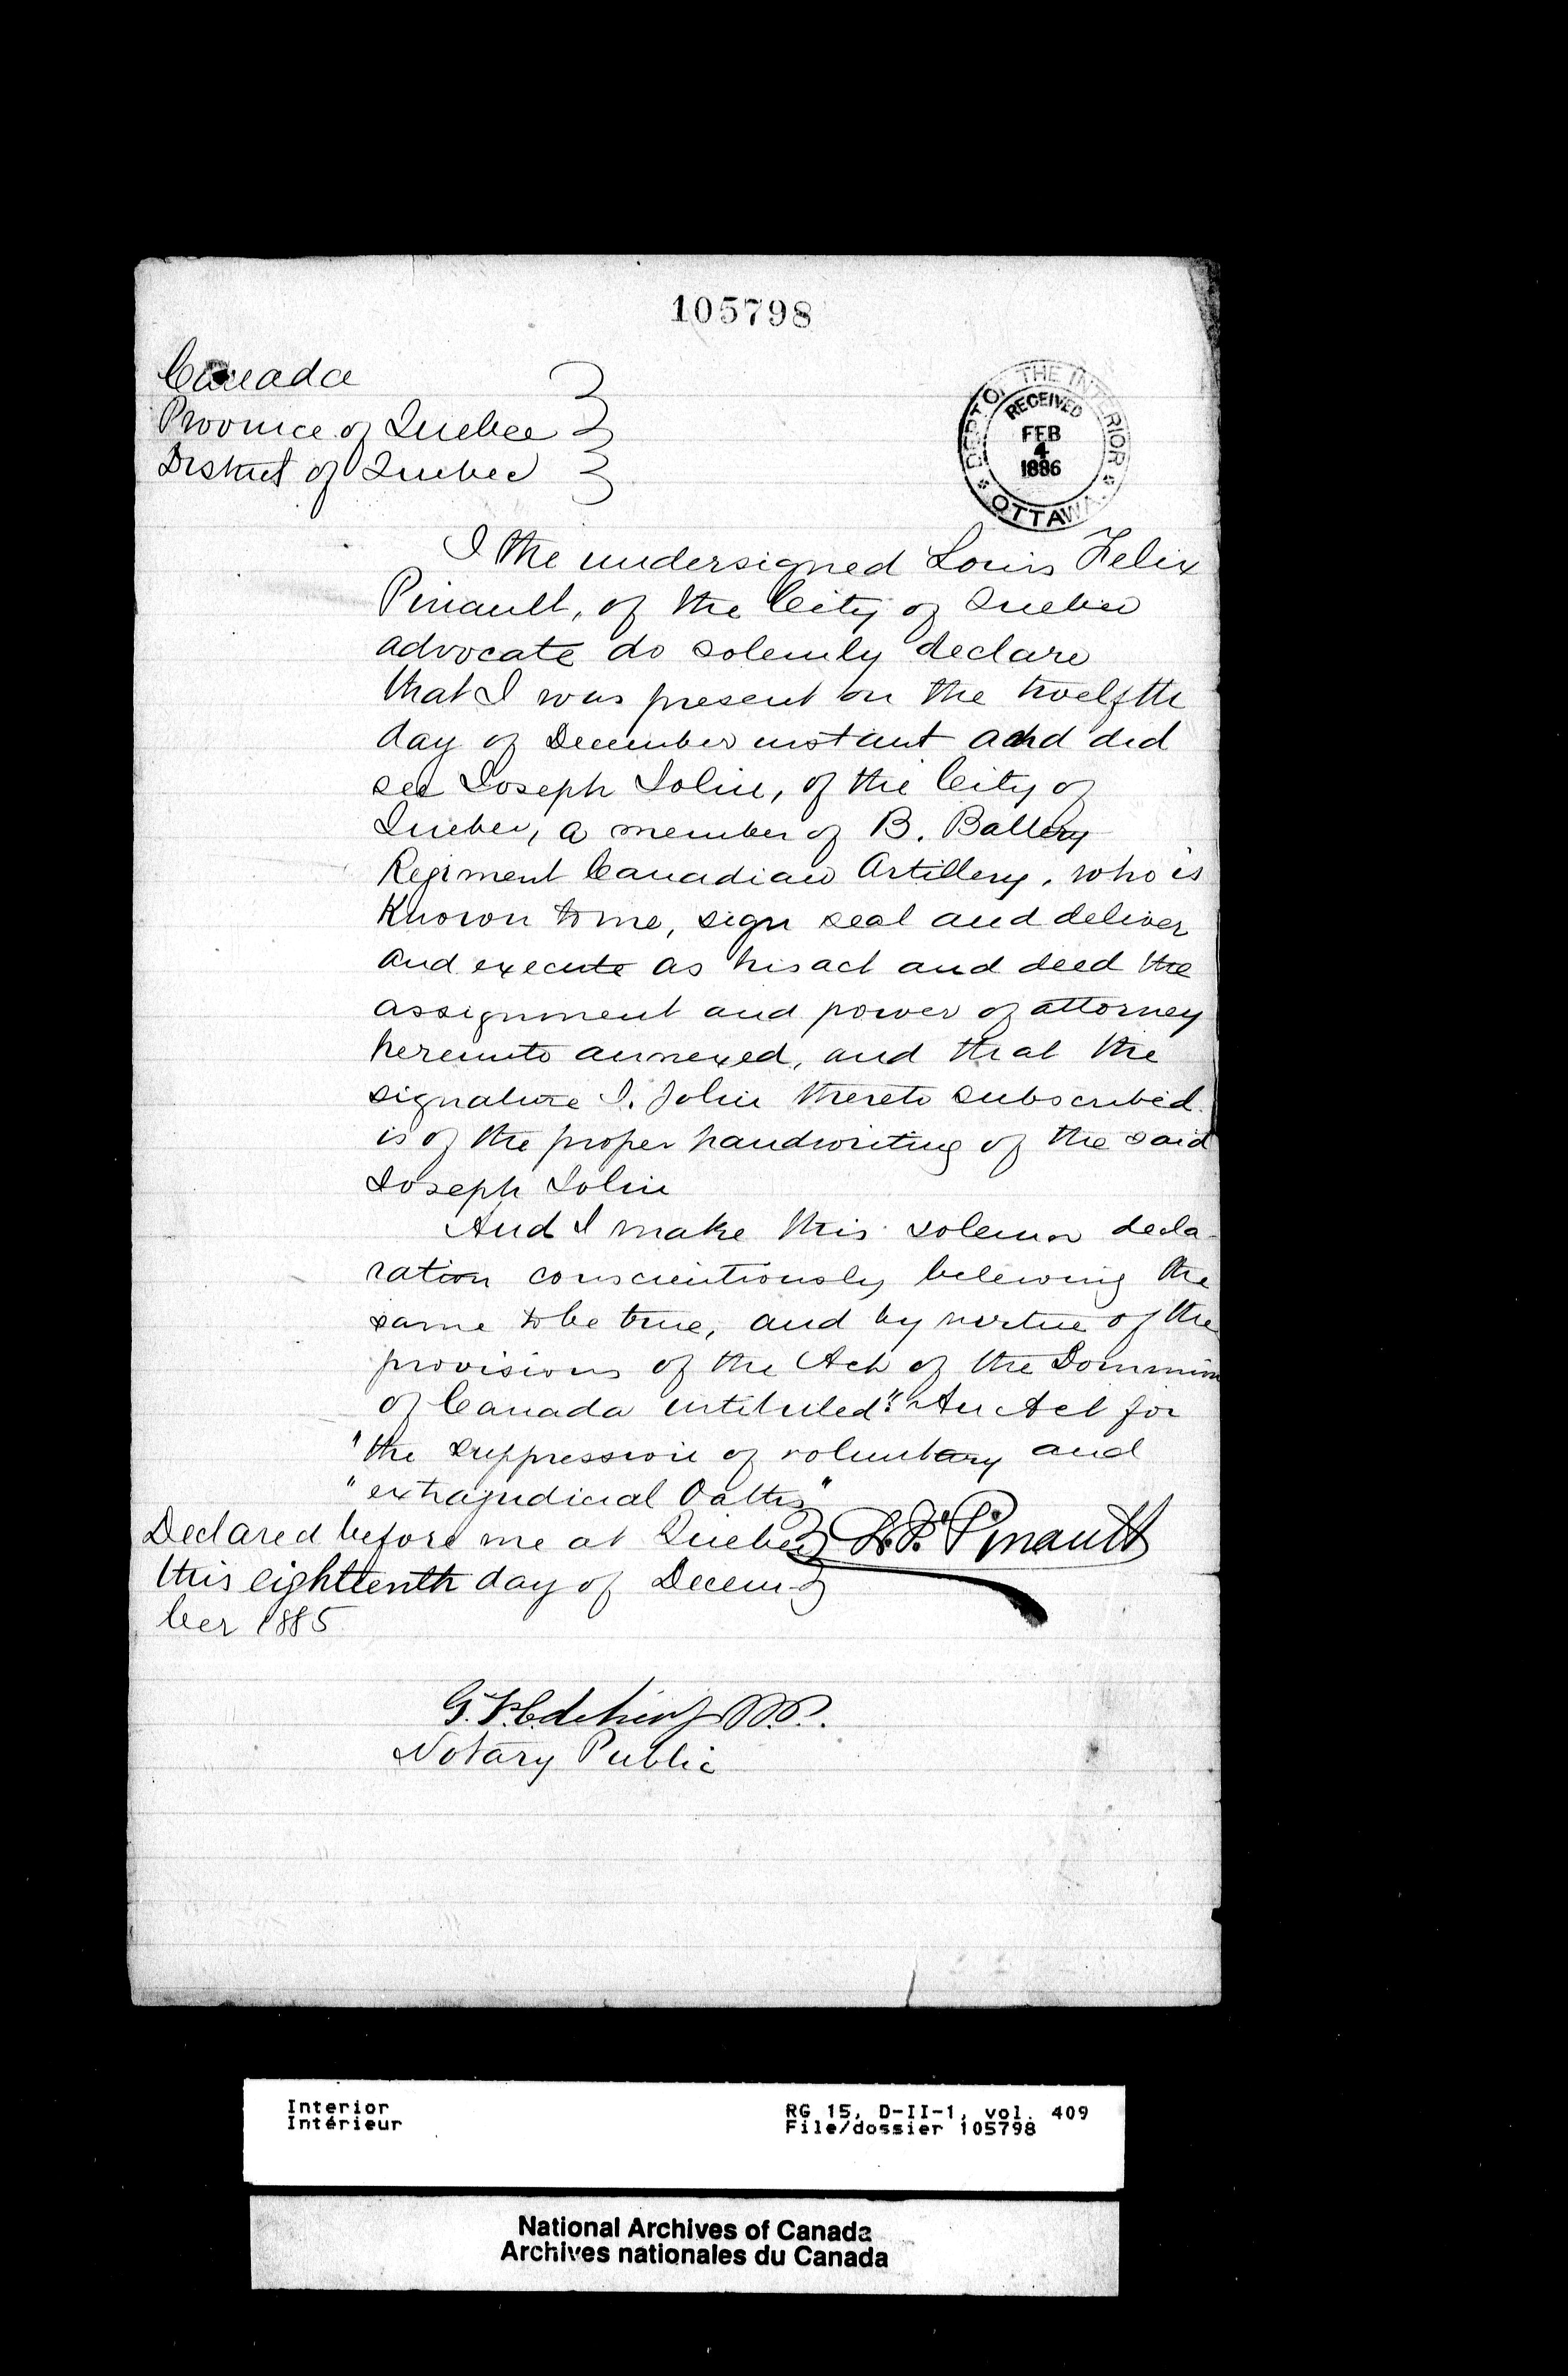 105798
Canada
Province of Quebec
District of Quebec
DEPT OF THE INTERIOR
RECEIVED
FEB
4
1886
OTTAWA
I the undersigned Louis Felix
Pinault, of the City of Quebec
advocate do solemnly declare
that I was present on the twelfth
day of December instant and did
see Joseph Jolin, of the City of
Quebec, a member of B. Battery
Regiment Canadian Artillery, who is
Known to me, sign seal and deliver
and execute as his act and deed the
assignment and power of attorney
hereunto annexed, and that the
signature J. Jolin thereto subscribed
is of the proper handwriting of the said
Joseph Jolin
And I make this solemn decla-
ration conscientiously believing the
same to be true, and by virtue of the
provisions of the Act of the Dominion
of Canada intituled "An Act for
"the suppression of voluntary and
"extrajudicial Oaths"
Declared before me at Quebec L. F. Pinault
this eighteenth day of Decem-
ber 1885
Notary Public
Interior
Intérieur
RG 15, D-II-1, vol. 409
File/dossier 105798
National Archives of Canada
Archives nationales du Canada